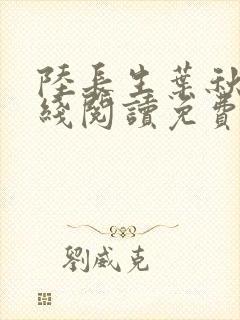 陸長生葉秋
綫閱讀免費
劉威克